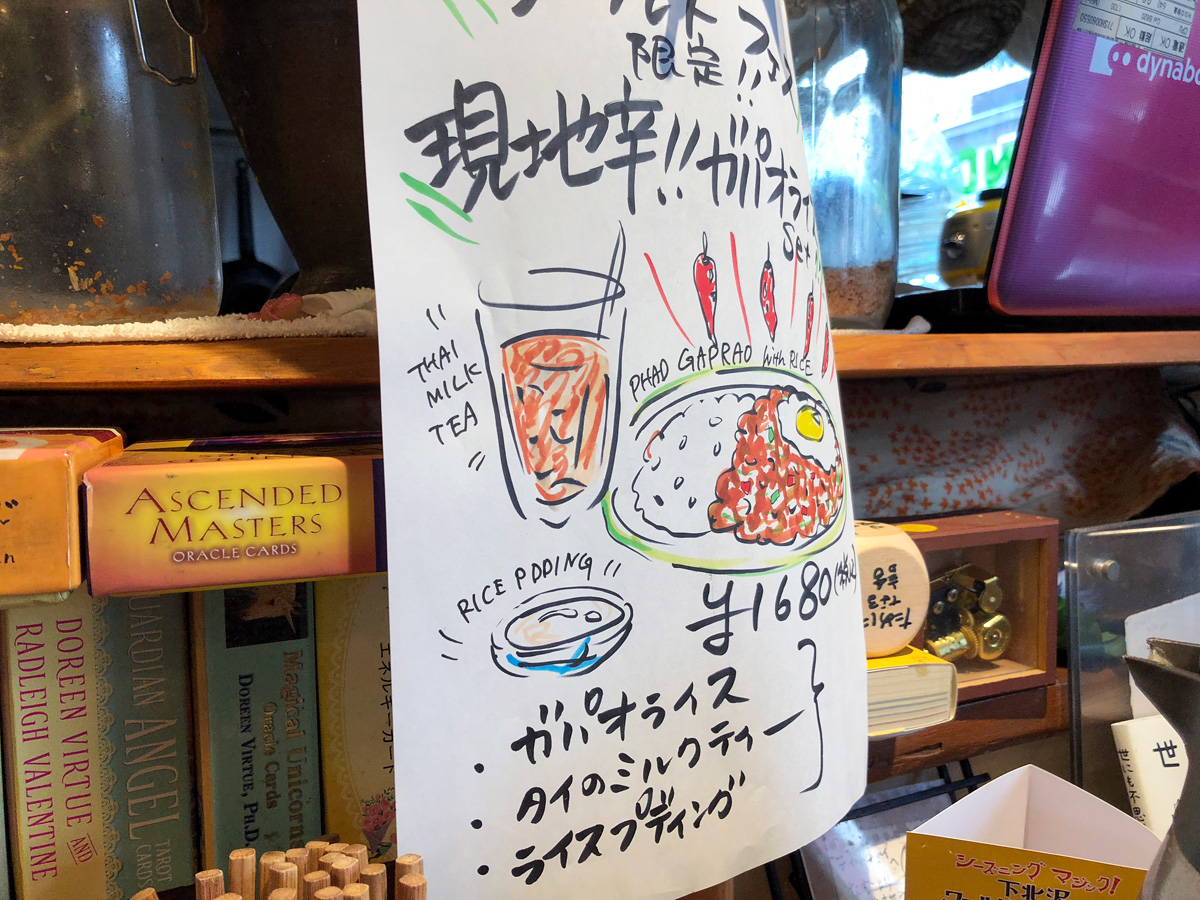 限定!!
現地辛!!ガパオライ
Set
THAI
MILK
TEA
PHAD GAPRAO with RICE
RICE PDDING
¥1680(税込)
・ガパオライス
・タイのミルクティー
・ライスプディング
dynabo
ASCENDED
MASTERS
ORACLE CARDS
DOREEN VIRTUE AND
RADLEIGH VALENTINE
GUARDIAN ANGEL
TAROT
CARDS
Magical Unicorns
Oracle Cards
DOREEN VIRTUE, Ph.D.
エネルギーカード
ために
なる
世
世にも不思
シーズニング マジック!
下北沢